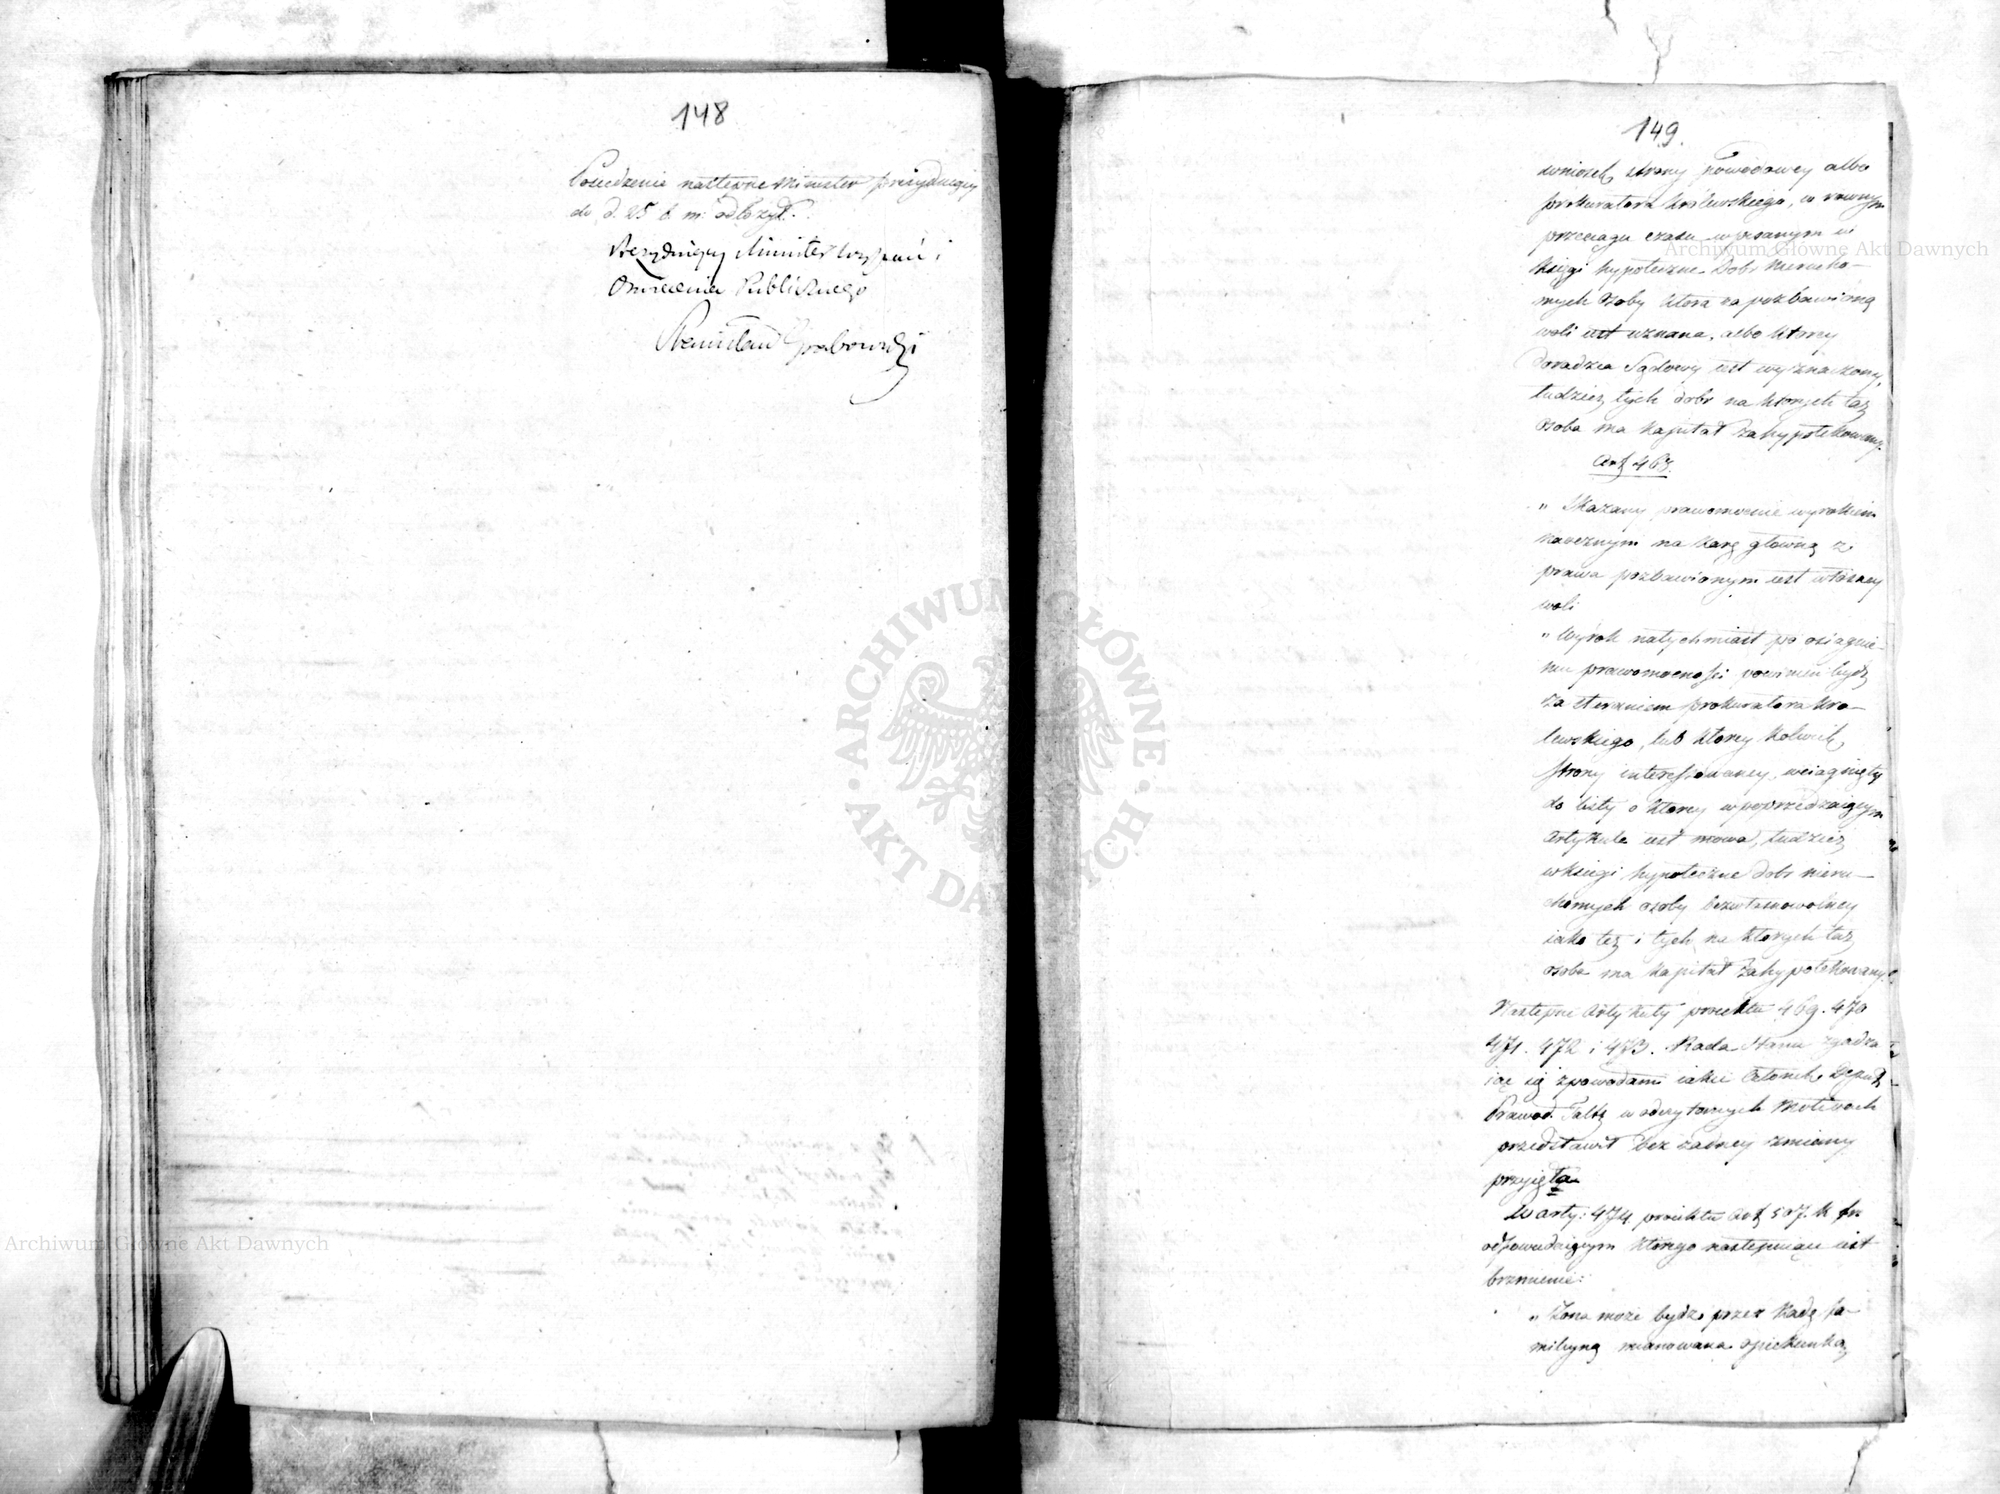 148
Posiedzenie następne Minister prezyduiący
do d. 25 b. m. odłożył.
Prezyduiący Minister Wyznań i
Oświecenia Publicznego
Stanisław Grabowski
149.
wniosek strony powodowey albo
prokuratora królewskiego, w równym
przeciągu czasu wpisanym w
księgi hypoteczne dobr nierucho-
mych osoby która za pozbawioną
woli iest uznana, albo ktorey
doradzca Sądowy iest wyznaczony,
tudzież tych dobr na których taż
osoba ma kapitał zahypotekowany.
Art 468.
„ Skazany prawomocnie wyrokiem
karnym na karę główną z
prawa pozbawionym iest własney
woli
„ Wyrok natychmiast po osiągnie-
niu prawomocności powinien bydź
za staraniem prokuratora Kró-
lewskiego, lub ktorey kolwiek
strony interessowaney, wciągnięty
do listy o ktorey w poprzedzaiącym
Artykule iest mowa, tudzież
w księgi hypoteczne dobr nieru-
chomych osoby bezwłasnowolney
iako też i tych na ktorych taż
osoba ma kapitał zahypotekowany.
Następne Artykuły proiektu 469. 470
471. 472 i 473. Rada Stanu zgadza
iąc się z powodami iakie Członek Deput
Prawod. w odczytanych Motivach
przedstawił bez żadney zmiany
przyięła
W arty: 474 proiektu Art 507. K fr
odpowiadaiącym którego następuiące iest
brzmienie:
„ Żona może bydź przez Radę fa-
milyiną mianowana opiekunką
Archiwum Główne Akt Dawnych
Archiwum Główne Akt Dawnych
ARCHIWUM GŁÓWNE AKT DAWNYCH